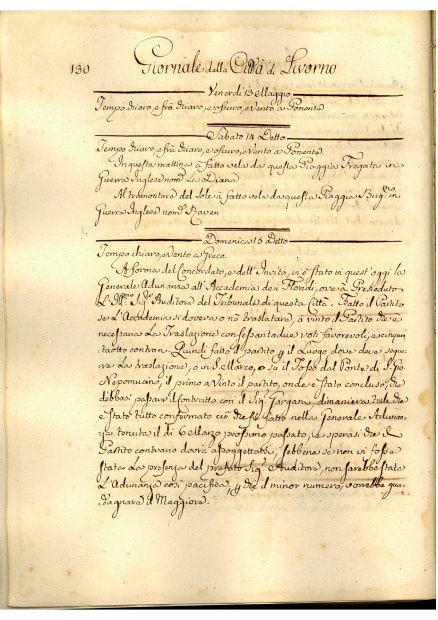 130 Giornale della Città di Livorno
Venerdì 13 Maggio
Tempo chiaro, e frà chiaro, e oscuro, e Vento a Ponente
Sabato 14 Detto
Tempo chiaro, e frà chiaro, e oscuro, e Vento a Ponente.
In questa mattina à fatto vela da questa Piaggia Fregata in
Guerra Inglese nom.ª La Diana
Al tramontare del Sole à fatto vela da questa Piaggia Brig.no in
Guerra Inglese nom.º Raven
Domenica 15 Detto
Tempo chiaro, e Vento a Greco.
A forma del Concordato, e dell'Invito, vi è stato in quest'oggi la
Generale Adunanza all'Accademia dei Floridi, ove à Preseduto
L'Ill.mo Sig.re Auditore del Tribunale di questa Città. Fatto il Partito
se L'Accademia si doveva o nò traslatare, à vinto il Partito che è
necessaria La Traslazione con sessantadue voti favorevoli, e cinquan
taotto contrari. Quindi fatto il partito per il Luogo dove deve segui
re La traslazione, o in S. Marco, o su il Fosso dal Ponte di S. Gio:
Nepomuceno, il primo à Vinto il partito, onde è stato concluso, che
debbasi passare il contratto con il Sig.re Gargani, di maniera tale che
è stato tutto confermato ciò che si è fatto nella Generale Adunan
za tenuta il dì 6 Marzo prossimo passato, e sperasi che il
Partito contrario dovrà assoggettarsi, sebbene se non vi fosse
stata La presenza del prefato Sig.re Auditore, non sarebbe stata
L'Adunanza così pacifica, per che il minor numero, vorrebbe gua
dagnare il Maggiore.